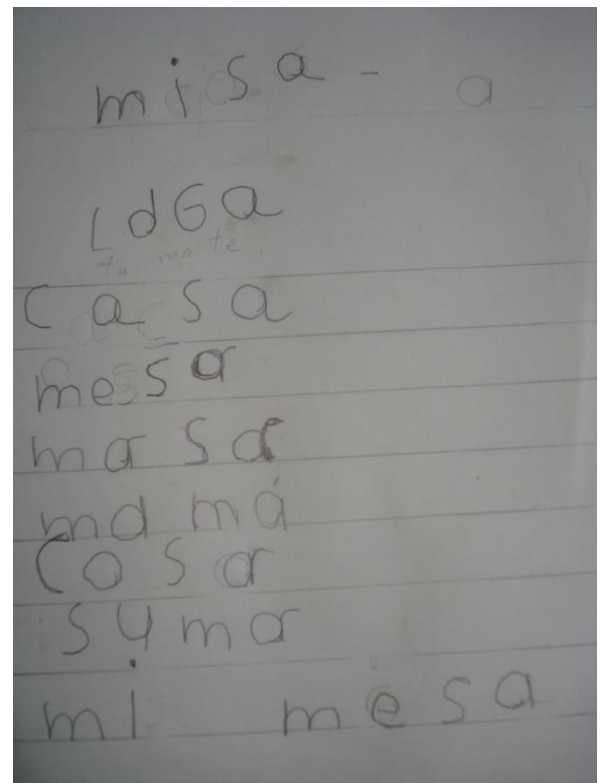 misa - a
LdGa
to ma te
casa
mesa
masa
mamá
cosa
suma
mi mesa